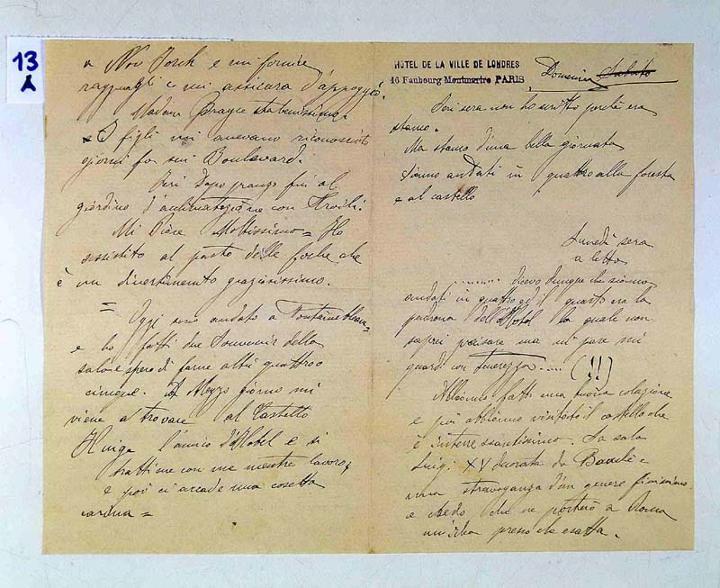 13
A
a New York e mi fornirà
ragguagli e mi assicura d'appoggio.
Madame stava benissimo
I figli mi avevano riconosciuto
giorni fa sui Boulevard.
Ieri dopo pranzo fui al
giardino d'acclimatazione con
Mi piace moltissimo = Ho
assistito al pasto delle foche che
è un divertimento graziosissimo.
= Oggi sono andato a Fontainebleau
e ho fatti due souvenir della
sala e spero di farne altri quattro o
cinque. A mezzo giorno mi
viene a trovare al Castello
l'amico d'Hotel e si
trattiene con me mentre lavoro,
e poi ci accade una cosetta
carina =
HOTEL DE LA VILLE DE LONDRES
16 Faubourg Montmartre PARIS
Domenica Sabato
Ieri sera non ho scritto perchè era
stanco.
Ma stanco d'una bella giornata
Siamo andati in quattro alla foresta
e al castello
Lunedì sera
a letto
........ Dicevo dunque che siamo
andati in quattro ed il quarto era la
padrona dell'Hotel la quale non
saprei precisare ma mi pare mi
guardi con tenerezza..... (!!)
Abbiamo fatti una buona colazione
e poi abbiamo visitato il castello che
è interessantissimo. La sala
Luigi XV decorata da
una stravaganza d'un genere finissimo
e credo che ne porterò a Roma
un'idea presso che esatta.